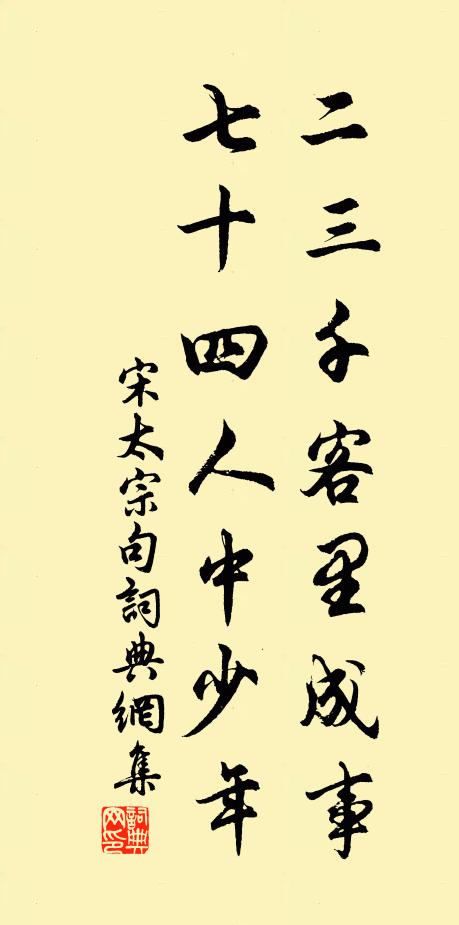 二三千客里成事
七十四人中少年
宋太宗句詞典網集
詞典网印